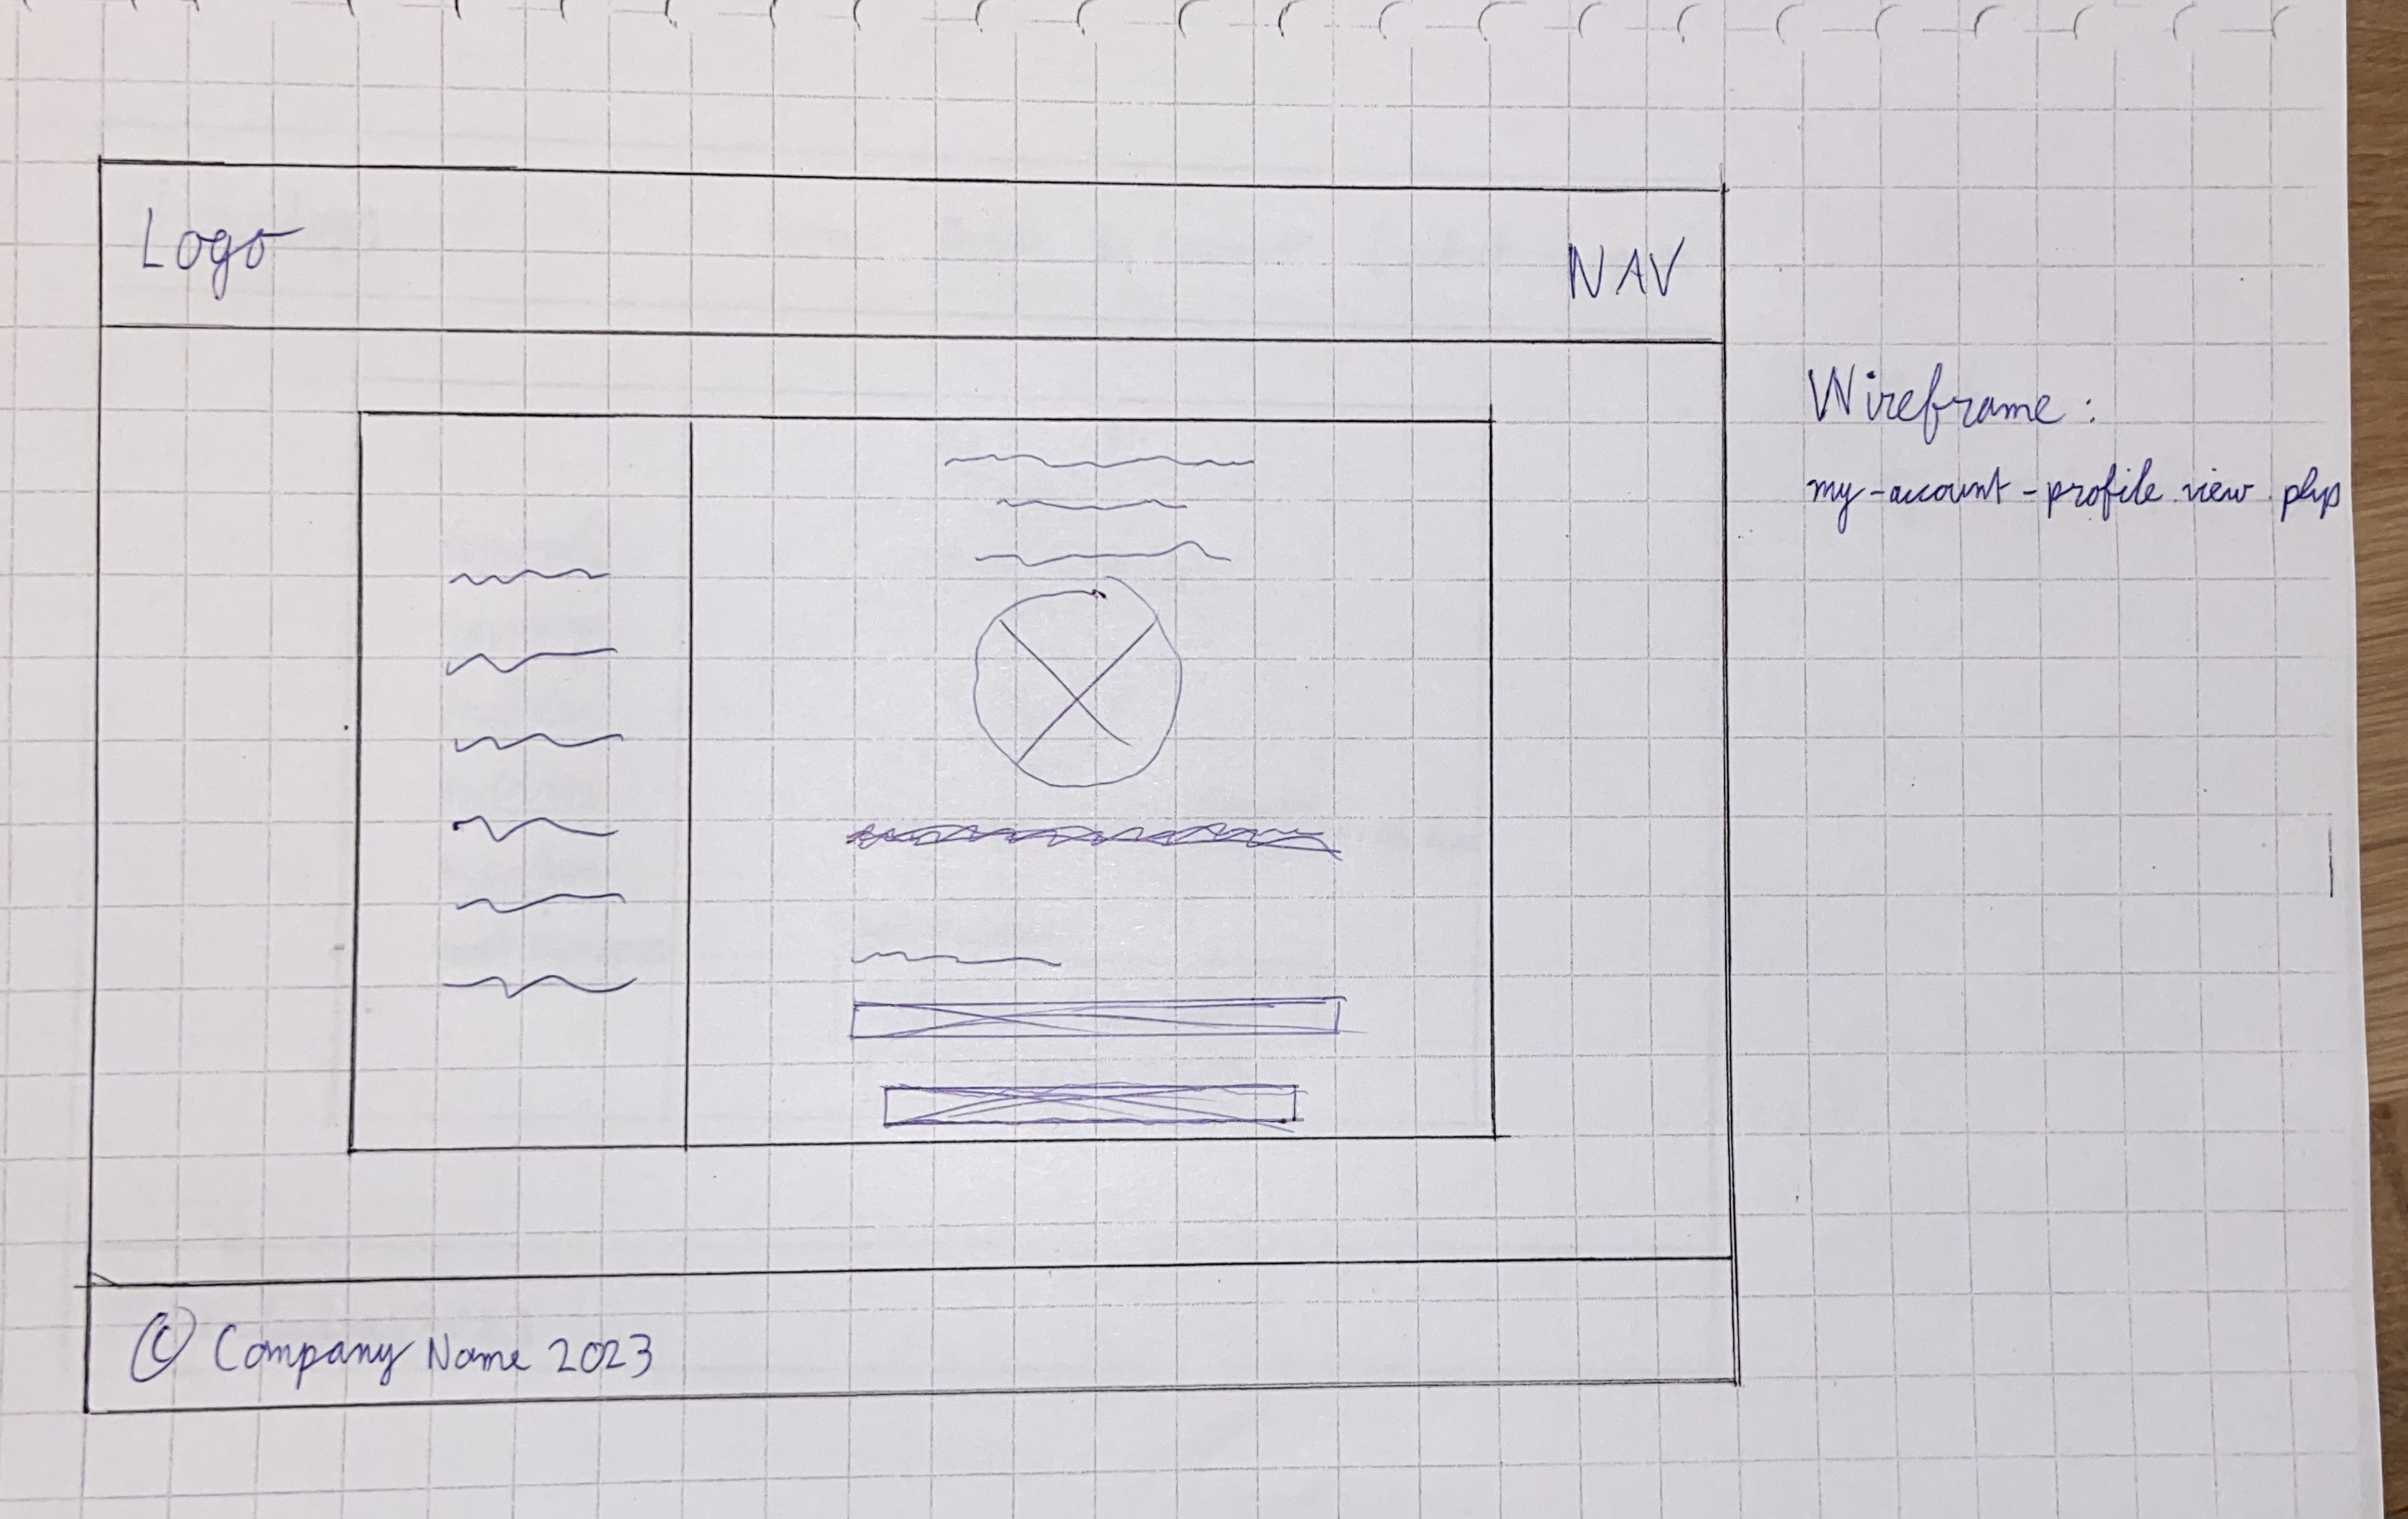 Logo
NAV
Wireframe:
my-account-profile.view.php
© Company Name 2023